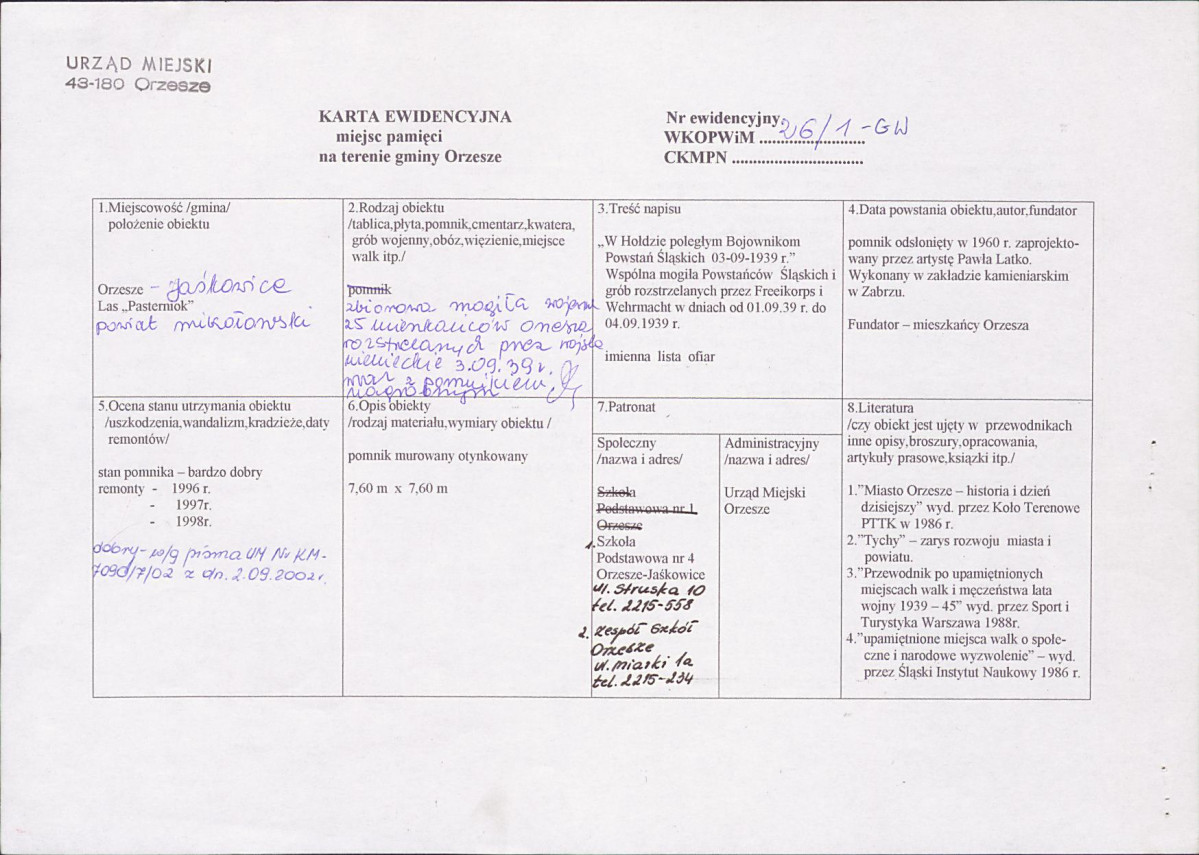 URZĄD MIEJSKI
43-180 Orzesze
KARTA EWIDENCYJNA
miejsc pamięci
na terenie gminy Orzesze
Nr ewidencyjny
WKOPWiM .......26/1-GW
CKMPN ...............................
1.Miejscowość /gmina/
położenie obiektu
Orzesze – Jaśkowice
Las „Pasterniok"
powiat mikołowski
2.Rodzaj obiektu
/tablica,płyta,pomnik,cmentarz,kwatera,
grób wojenny,obóz,więzienie,miejsce
walk itp./
pomnik
zbiorowa mogiła wojenna
25 mieszkańców Orzesza
rozstrzelanych przez wojska
niemieckie 3.09.39 r.
wraz z pomnikiem
nagrobnym
3.Treść napisu
„W Hołdzie poległym Bojownikom
Powstań Śląskich 03-09-1939 r."
Wspólna mogiła Powstańców Śląskich i
grób rozstrzelanych przez Freeikorps i
Wehrmacht w dniach od 01.09.39 r. do
04.09.1939 r.
imienna lista ofiar
4.Data powstania obiektu,autor,fundator
pomnik odsłonięty w 1960 r. zaprojekto-
wany przez artystę Pawła Latko.
Wykonany w zakładzie kamieniarskim
w Zabrzu.
Fundator – mieszkańcy Orzesza
5.Ocena stanu utrzymania obiektu
/uszkodzenia,wandalizm,kradzieże,daty
remontów/
stan pomnika – bardzo dobry
remonty - 1996 r.
- 1997r.
- 1998r.
dobry - w/g pisma UM Nr KM-
7090/7/02 z dn. 2.09.2002r.
6.Opis obiekty
/rodzaj materiału,wymiary obiektu /
pomnik murowany otynkowany
7,60 m x 7,60 m
7.Patronat
Społeczny
/nazwa i adres/
Szkoła
Podstawowa nr 1
Orzesze
1.Szkoła
Podstawowa nr 4
Orzesze-Jaśkowice
ul. Struska 10
tel. 2215-558
2. Zespół Szkół
Orzesze
ul. Miarki 1a
tel. 2215-234
Administracyjny
/nazwa i adres/
Urząd Miejski
Orzesze
8.Literatura
/czy obiekt jest ujęty w przewodnikach
inne opisy,broszury,opracowania,
artykuły prasowe,książki itp./
1."Miasto Orzesze – historia i dzień
dzisiejszy" wyd. przez Koło Terenowe
PTTK w 1986 r.
2."Tychy" – zarys rozwoju miasta i
powiatu.
3."Przewodnik po upamiętnionych
miejscach walk i męczeństwa lata
wojny 1939 – 45" wyd. przez Sport i
Turystyka Warszawa 1988r.
4."upamiętnione miejsca walk o społe-
czne i narodowe wyzwolenie" – wyd.
przez Śląski Instytut Naukowy 1986 r.